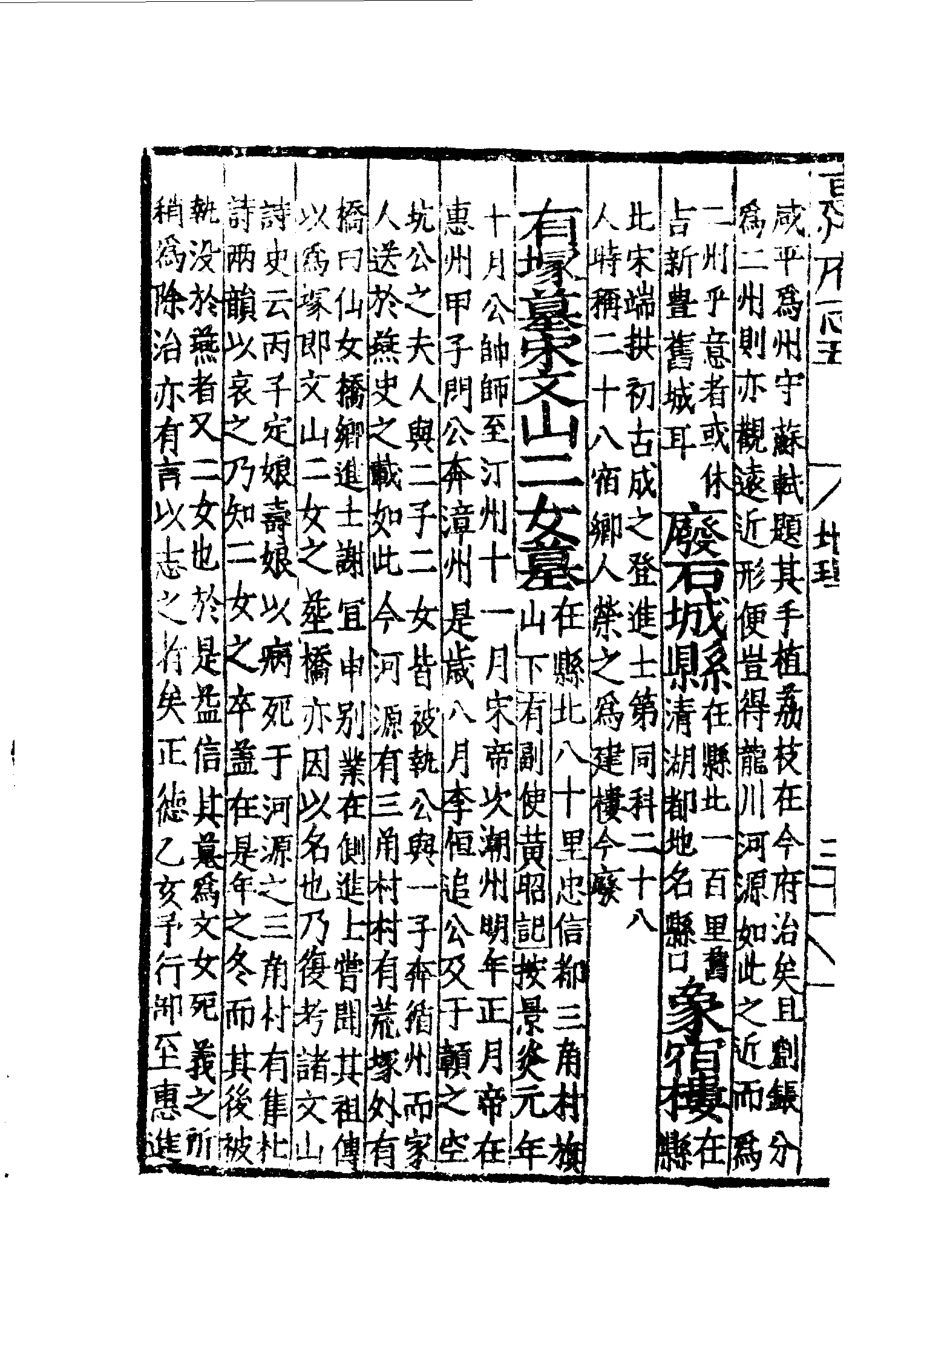 地理
咸平爲州守蘇軾題其手植荔枝在今府治矣且劉鋹分
爲二州則亦觀遠近形便豈得龍川河源如此之近而爲
二州乎意者或休
吉新豐舊城耳
廢石城縣
在縣北一百里舊
清湖都地名縣口
象宿樓
在
縣
北宋端拱初古成之登進士第同科二十八
人時稱二十八宿鄉人榮之爲建樓今廢
有塚墓宋文山二女墓
在縣北八十里忠信都三角村旗
山下有副使黄昭記按景炎元年
十月公帥師至汀州十一月宋帝次潮州明年正月帝在
惠州甲子門公奔漳州是歲八月李恒追公及于贑之空
坑公之夫人與二子二女皆被執公與一子奔循州而家
人送於燕史之載如此今河源有三角村村有荒塚外有
橋曰仙女橋鄉進士謝宜申别業在側進士嘗聞其祖傳
以爲塚即文山二女之塟橋亦因以名也乃復考諸文山
詩史云丙子定娘壽娘以病死于河源之三角村有集杜
詩兩韻以哀之乃知二女之卒葢在是年之冬而其後被
執没於燕者又二女也於是益信其墓爲文女死義之所
稍爲除治亦有言以志之者矣正德乙亥予行部至惠進